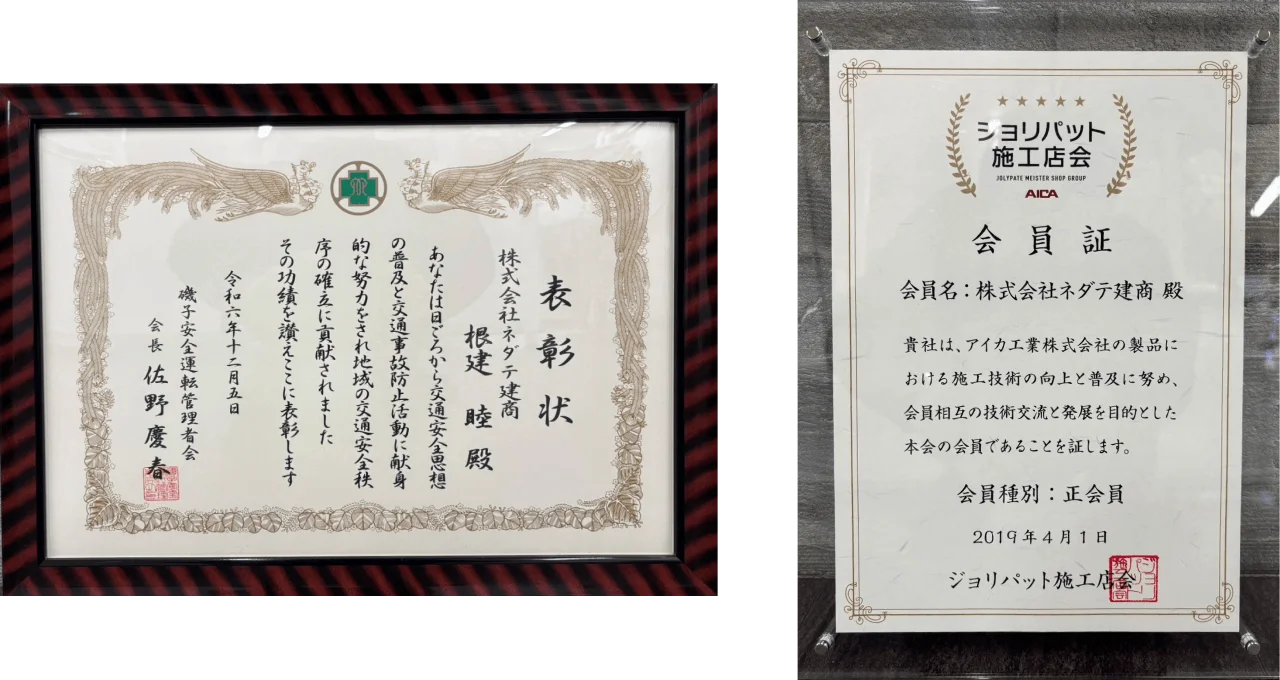 表彰状
株式会社ネダテ建商
根建 睦 殿
あなたは日ごろから交通安全思想
の普及と交通事故防止活動に献身
的な努力をされ地域の交通安全秩
序の確立に貢献されました
その功績を讃えここに表彰します
令和六年十二月五日
磯子安全運転管理者会
会長 佐野慶春
ジョリパット
施工店会
JOLYPATE MEISTER SHOP GROUP
AICA
会員証
会員名：株式会社ネダテ建商 殿
貴社は、アイカ工業株式会社の製品に
おける施工技術の向上と普及に努め、
会員相互の技術交流と発展を目的とした
本会の会員であることを証します。
会員種別：正会員
2019年4月1日
ジョリパット施工店会